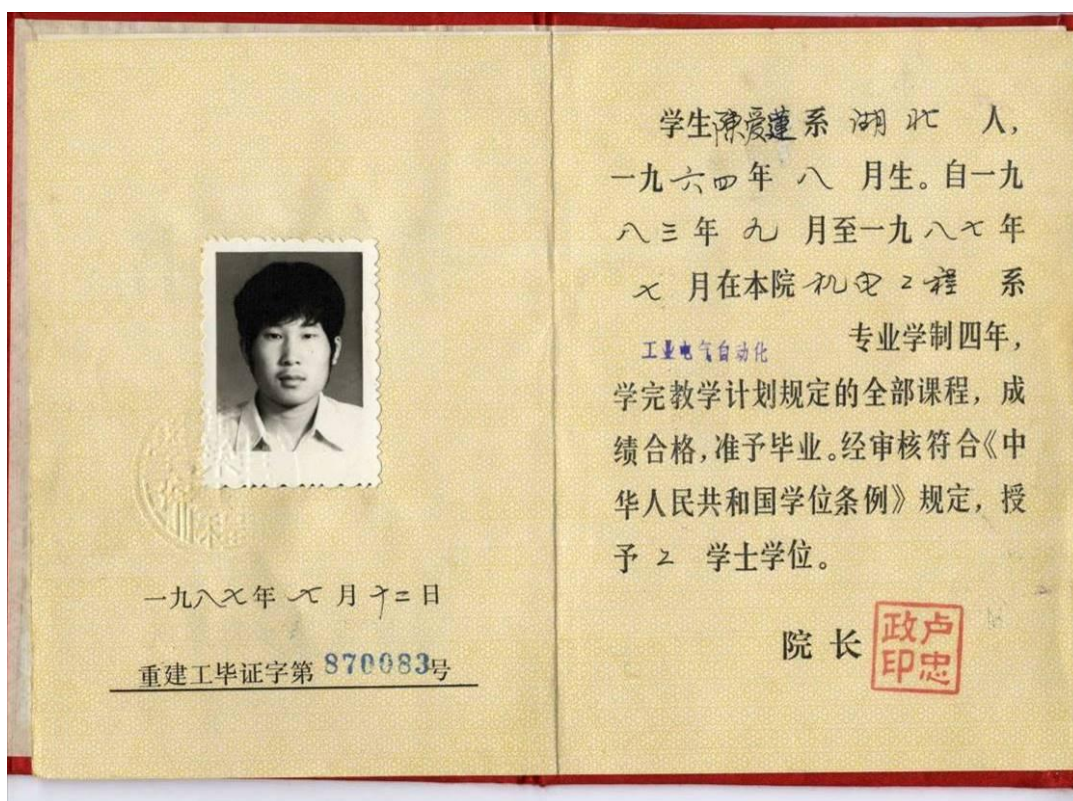 一九八七年七月十二日
重建工毕证字第870083号
学生陈爱蓮系湖北人，
一九六四年八月生。自一九
八三年九月至一九八七年
七月在本院机电工程系
工业电气自动化专业学制四年，
学完教学计划规定的全部课程，成
绩合格，准予毕业。经审核符合《中
华人民共和国学位条例》规定，授
予工学士学位。
院长
卢忠政印